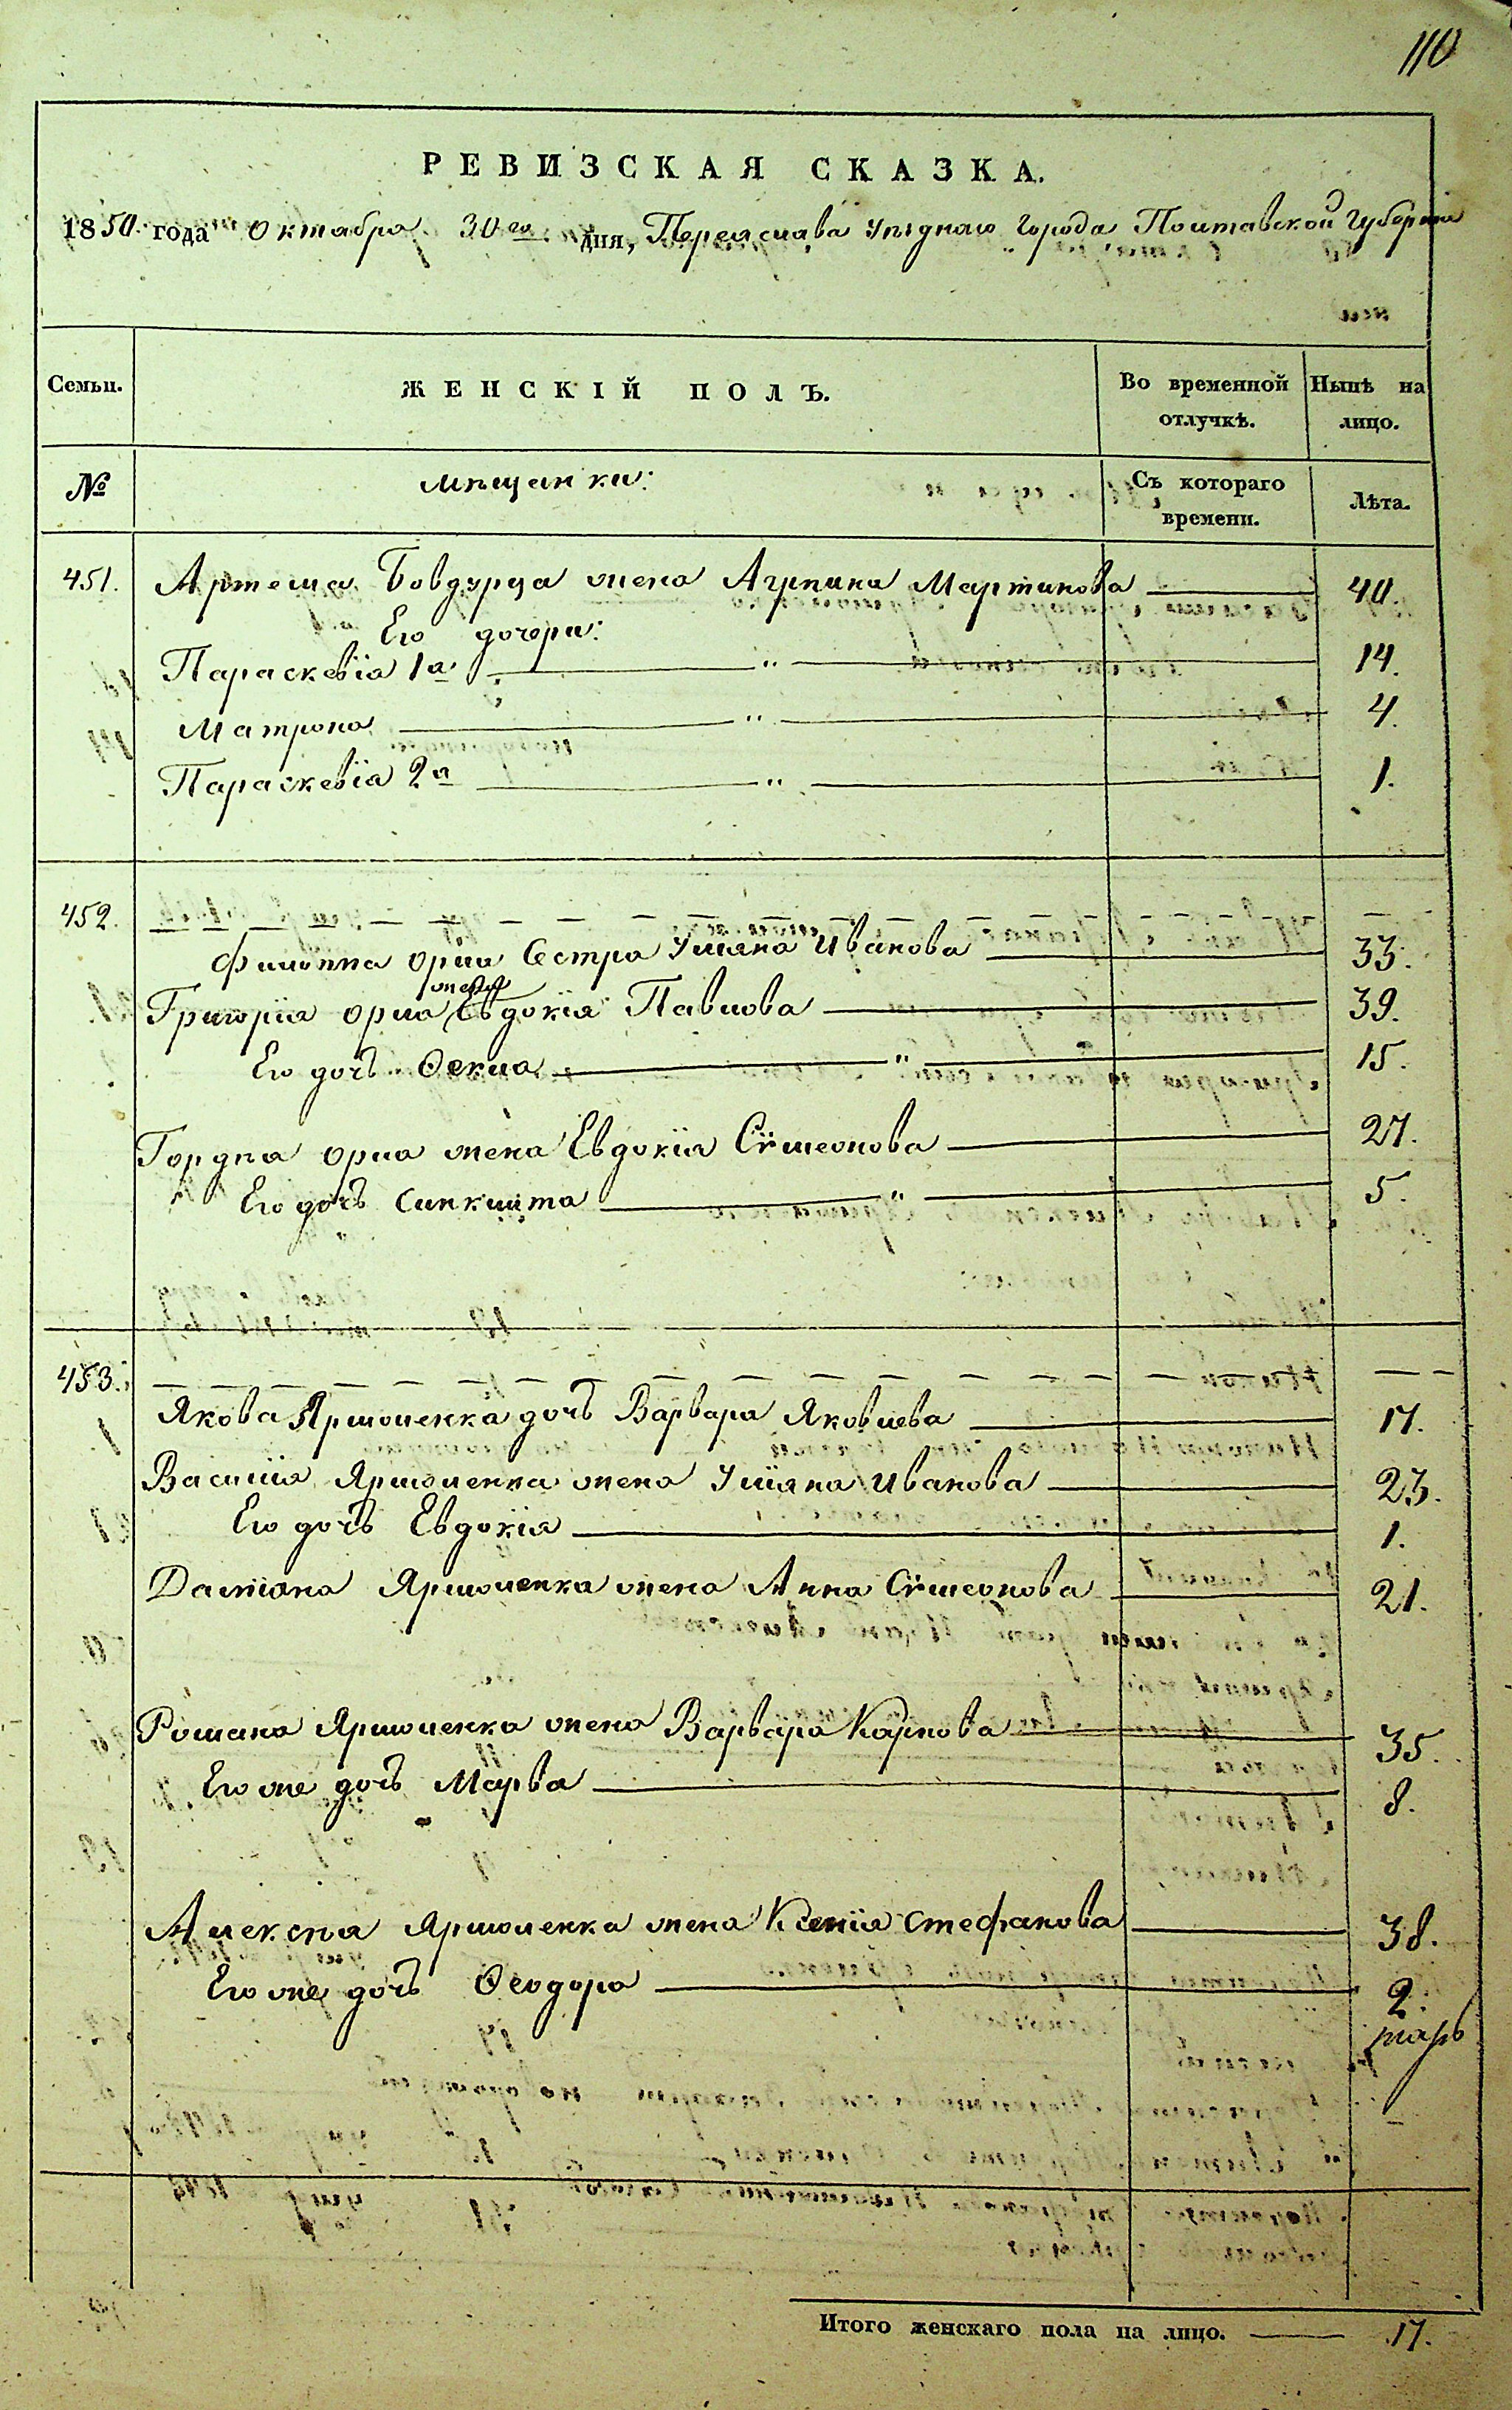 110
РЕВИЗСКАЯ СКАЗКА.
1850 года Октября 30го дня, Переяслава уѣзднаго города Полтавской Губерніи
Семьи. ЖЕНСКІЙ ПОЛЪ. Во временной отлучкѣ. Нынѣ на лицо.
№ мѣщанки: Съ котораго времени. Лѣта.
451. Артема Бовдурца жена Агрпина Мартинова 40.
Его дочери:
Параскевіа 1а " 14.
Матрона " 4.
Параскевіа 2а " 1.
452.
Филиппа Орла Сестра Уліяна Иванова 33.
Григоріа Орла жена Евдокія Павлова 39.
Его дочь Ѳекла " 15.
Гордѣа Орла жена Евдокіа Сѵмеонова 27.
Его дочь Синклита " 5.
453.
Якова Ярмоленка дочь Варвара Яковлева 17.
Василіа Ярмоленка жена Уліяна Иванова 23.
Его дочь Евдокіа 1.
Даміана Ярмоленка жена Анна Сѵмеонова 21.
Романа Ярмоленка жена Варвара Карпова 35.
Его же дочь Марва 8.
Алексѣа Ярмоленка жена Ксеніа Стефанова 38.
Его же дочь Ѳеодора 2.
Итого женскаго пола на лицо. 17.